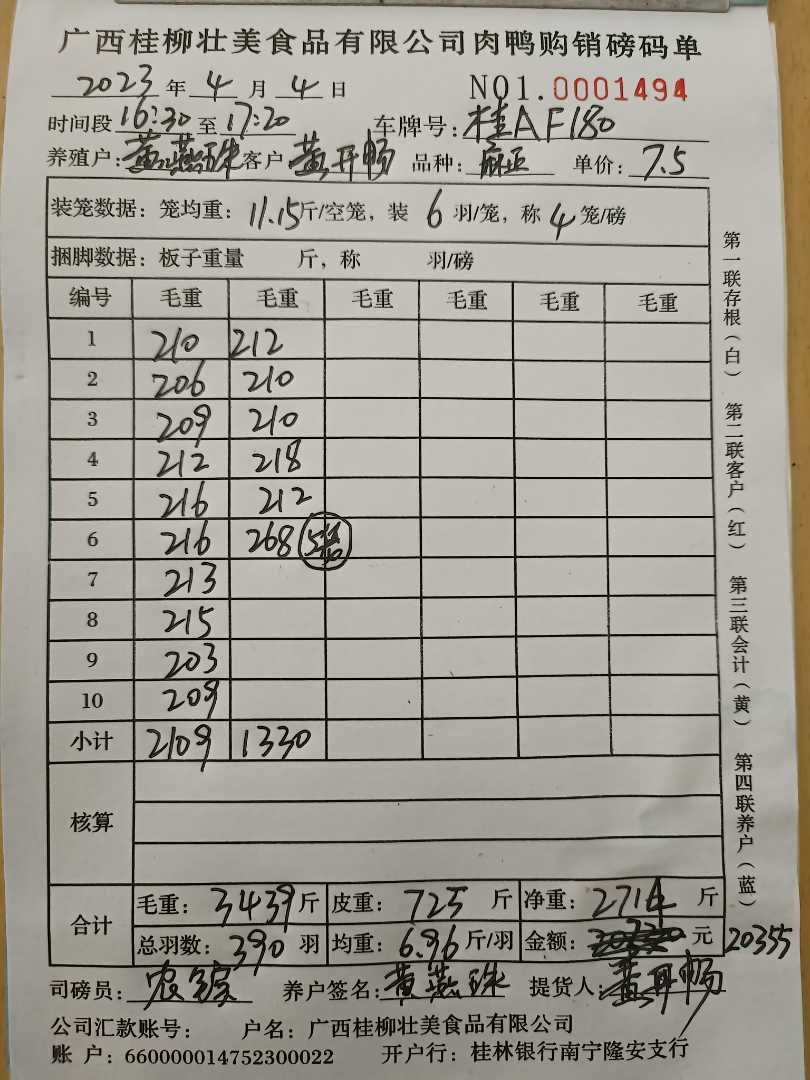 广西桂柳壮美食品有限公司肉鸭购销磅码单
2023 年 4 月 4 日 NO1.0001494
时间段 16:30 至 17:20 车牌号: 桂AF180
养殖户: 黄燕珠 客户 黄开畅 品种: 麻正 单价: 7.5
装笼数据: 笼均重: 11.15 斤/空笼, 装 6 羽/笼, 称 4 笼/磅
捆脚数据: 板子重量 斤, 称 羽/磅
编号 毛重 毛重 毛重 毛重 毛重 毛重
1 210 212
2 206 210
3 209 210
4 212 218
5 216 212
6 216 268 5笼
7 213
8 215
9 203
10 209
小计 2109 1330
核算
合计 毛重: 3439 斤 皮重: 725 斤 净重: 2714 斤
总羽数: 390 羽 均重: 6.96 斤/羽 金额: 元 20355
司磅员: 农 养户签名: 黄燕珠 提货人: 黄开畅
公司汇款账号: 户名: 广西桂柳壮美食品有限公司
账 户: 660000014752300022 开户行: 桂林银行南宁隆安支行
第一联存根(白) 第二联客户(红) 第三联会计(黄) 第四联养户(蓝)